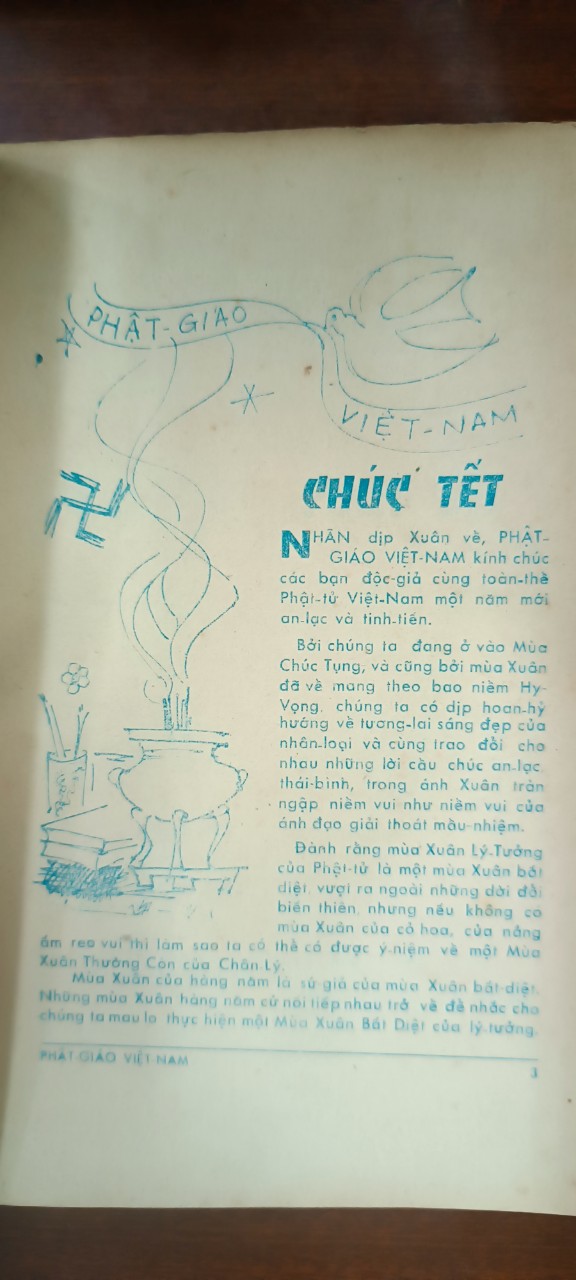 PHẬT-GIÁO
VIỆT-NAM
CHÚC TẾT
NHÂN dịp Xuân về, PHẬT-
GIÁO VIỆT-NAM kính chúc
các bạn độc-giả cùng toàn-thể
Phật-tử Việt-Nam một năm mới
an-lạc và tinh-tiến.
Bởi chúng ta đang ở vào Mùa
Chúc Tụng, và cũng bởi mùa Xuân
đã về mang theo bao niềm Hy-
Vọng, chúng ta có dịp hoan-hỷ
hướng về tương-lai sáng đẹp của
nhân-loại và cùng trao đổi cho
nhau những lời cầu chúc an-lạc,
thái-bình, trong ánh Xuân tràn
ngập niềm vui như niềm vui của
ánh đạo giải thoát mầu-nhiệm.
Đành rằng mùa Xuân Lý-Tưởng
của Phật-tử là một mùa Xuân bất
diệt, vượt ra ngoài những dời đổi
biến thiên, nhưng nếu không có
mùa Xuân của cỏ hoa, của nắng
ấm reo vui thì làm sao ta có thể có được ý-niệm về một Mùa
Xuân Thường Còn của Chân-Lý.
Mùa Xuân của hàng năm là sứ-giả của mùa Xuân bất-diệt.
Những mùa Xuân hàng năm cứ nối tiếp nhau trở về để nhắc cho
chúng ta mau lo thực hiện một Mùa Xuân Bất Diệt của lý-tưởng.
PHẬT-GIÁO VIỆT NAM
3